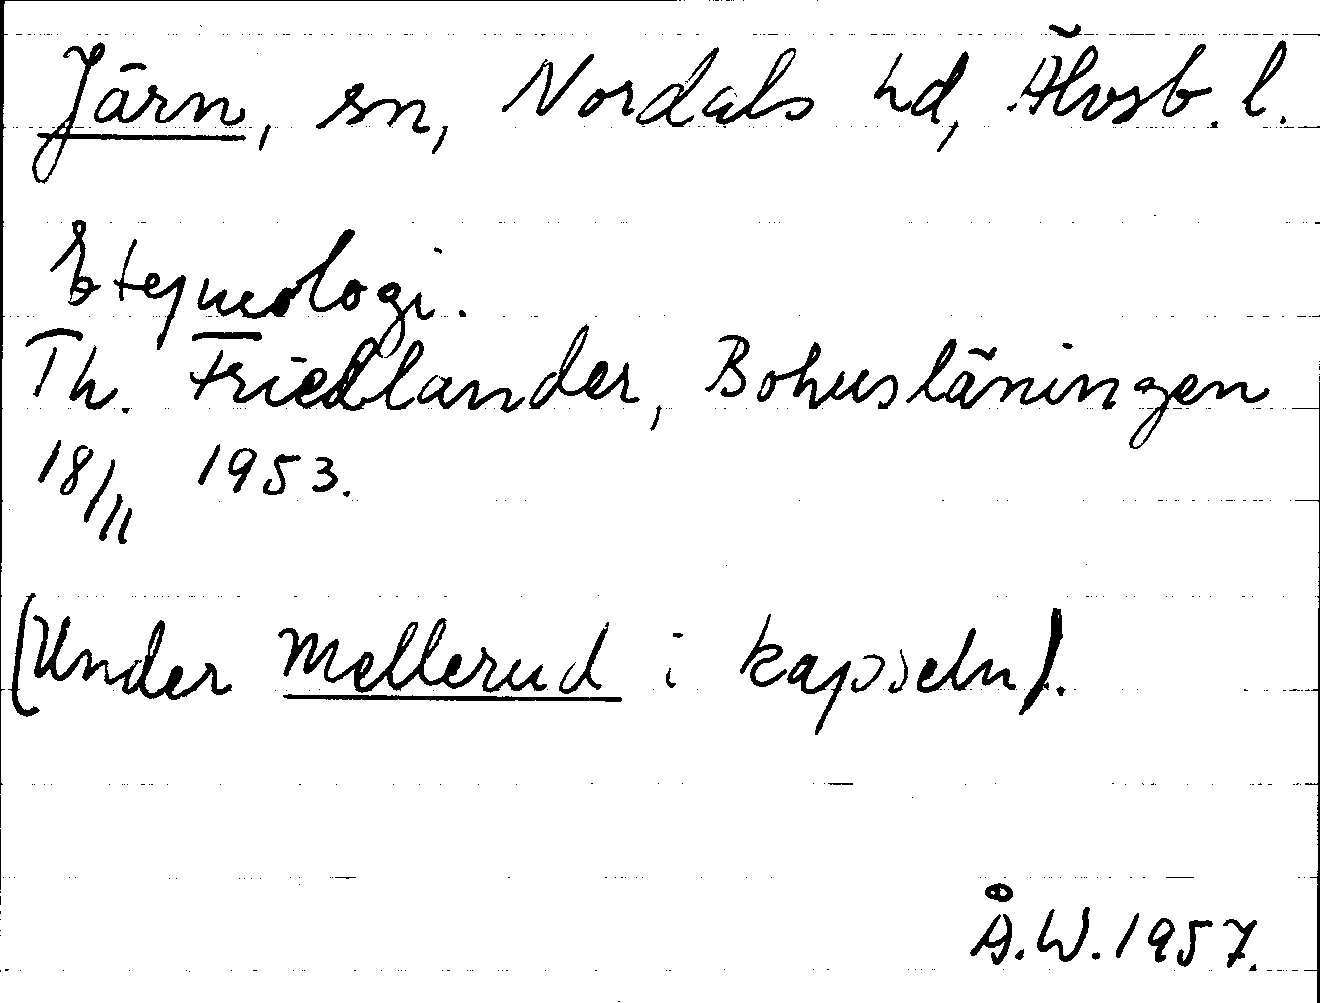 Järn, sn, Nordals hd, Älvsb. l.
Etymologi.
Th. Friedlander, Bohusläningen
18/11 1953.
(Under Mellerud i kapseln).
Å.W. 1957.